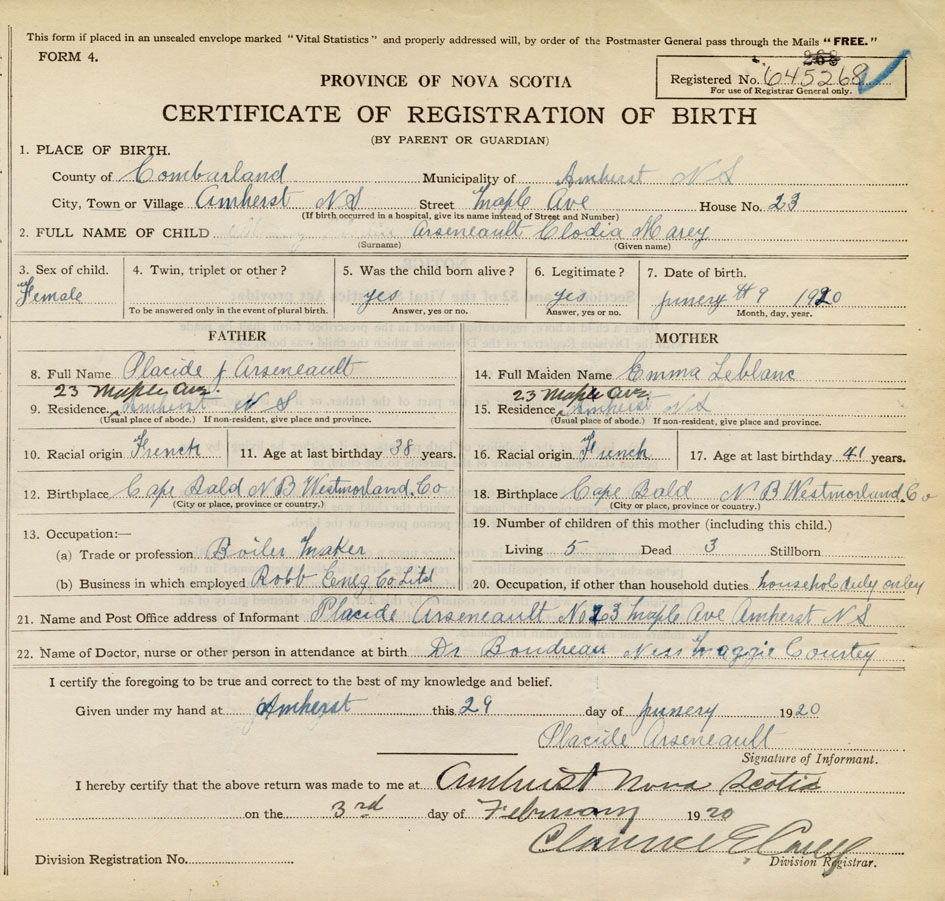 This form if placed in an unsealed envelope marked "Vital Statistics" and properly addressed will, by order of the Postmaster General pass through the Mails "FREE."
FORM 4.
268
Registered No. 645268
For use of Registrar General only.
PROVINCE OF NOVA SCOTIA
CERTIFICATE OF REGISTRATION OF BIRTH
(BY PARENT OR GUARDIAN)
1. PLACE OF BIRTH.
County of Combarland Municipality of Amherst N S
City, Town or Village Amherst N S Street Maple Ave House No. 23
(If birth occurred in a hospital, give its name instead of Street and Number)
2. FULL NAME OF CHILD Arseneault Clodia Marey
(Surname) (Given name)
3. Sex of child. 4. Twin, triplet or other? 5. Was the child born alive? 6. Legitimate? 7. Date of birth.
Female yes yes junery 9 1920
To be answered only in the event of plural birth. Answer, yes or no. Answer, yes or no. Month, day, year.
FATHER MOTHER
8. Full Name Placide J Arseneault 14. Full Maiden Name Emma Leblanc
23 Maple Ave. 23 Maple Ave.
9. Residence. Amherst N S 15. Residence Amherst N S
(Usual place of abode.) If non-resident, give place and province. (Usual place of abode.) If non-resident, give place and province.
10. Racial origin French 11. Age at last birthday 38 years. 16. Racial origin French 17. Age at last birthday 41 years.
12. Birthplace Cape Bald N B Westmorland. Co 18. Birthplace Cape Bald N B Westmorland. Co
(City or place, province or country.) (City or place, province or country.)
19. Number of children of this mother (including this child.)
13. Occupation:—
(a) Trade or profession Boiler Maker Living 5 Dead 3 Stillborn
(b) Business in which employed Robb Eneg. Co. Litd 20. Occupation, if other than household duties household duly onley
21. Name and Post Office address of Informant Placide Arseneault No 23 Maple Ave Amherst N S
22. Name of Doctor, nurse or other person in attendance at birth Dr Boudreau Ness Maggie Courtey
I certify the foregoing to be true and correct to the best of my knowledge and belief.
Given under my hand at Amherst this 29 day of junery 1920
Placide Arseneault
Signature of Informant.
I hereby certify that the above return was made to me at Amhurst Nova Scotia
on the 3rd day of February 1920
Clarence E
Division Registrar.
Division Registration No.